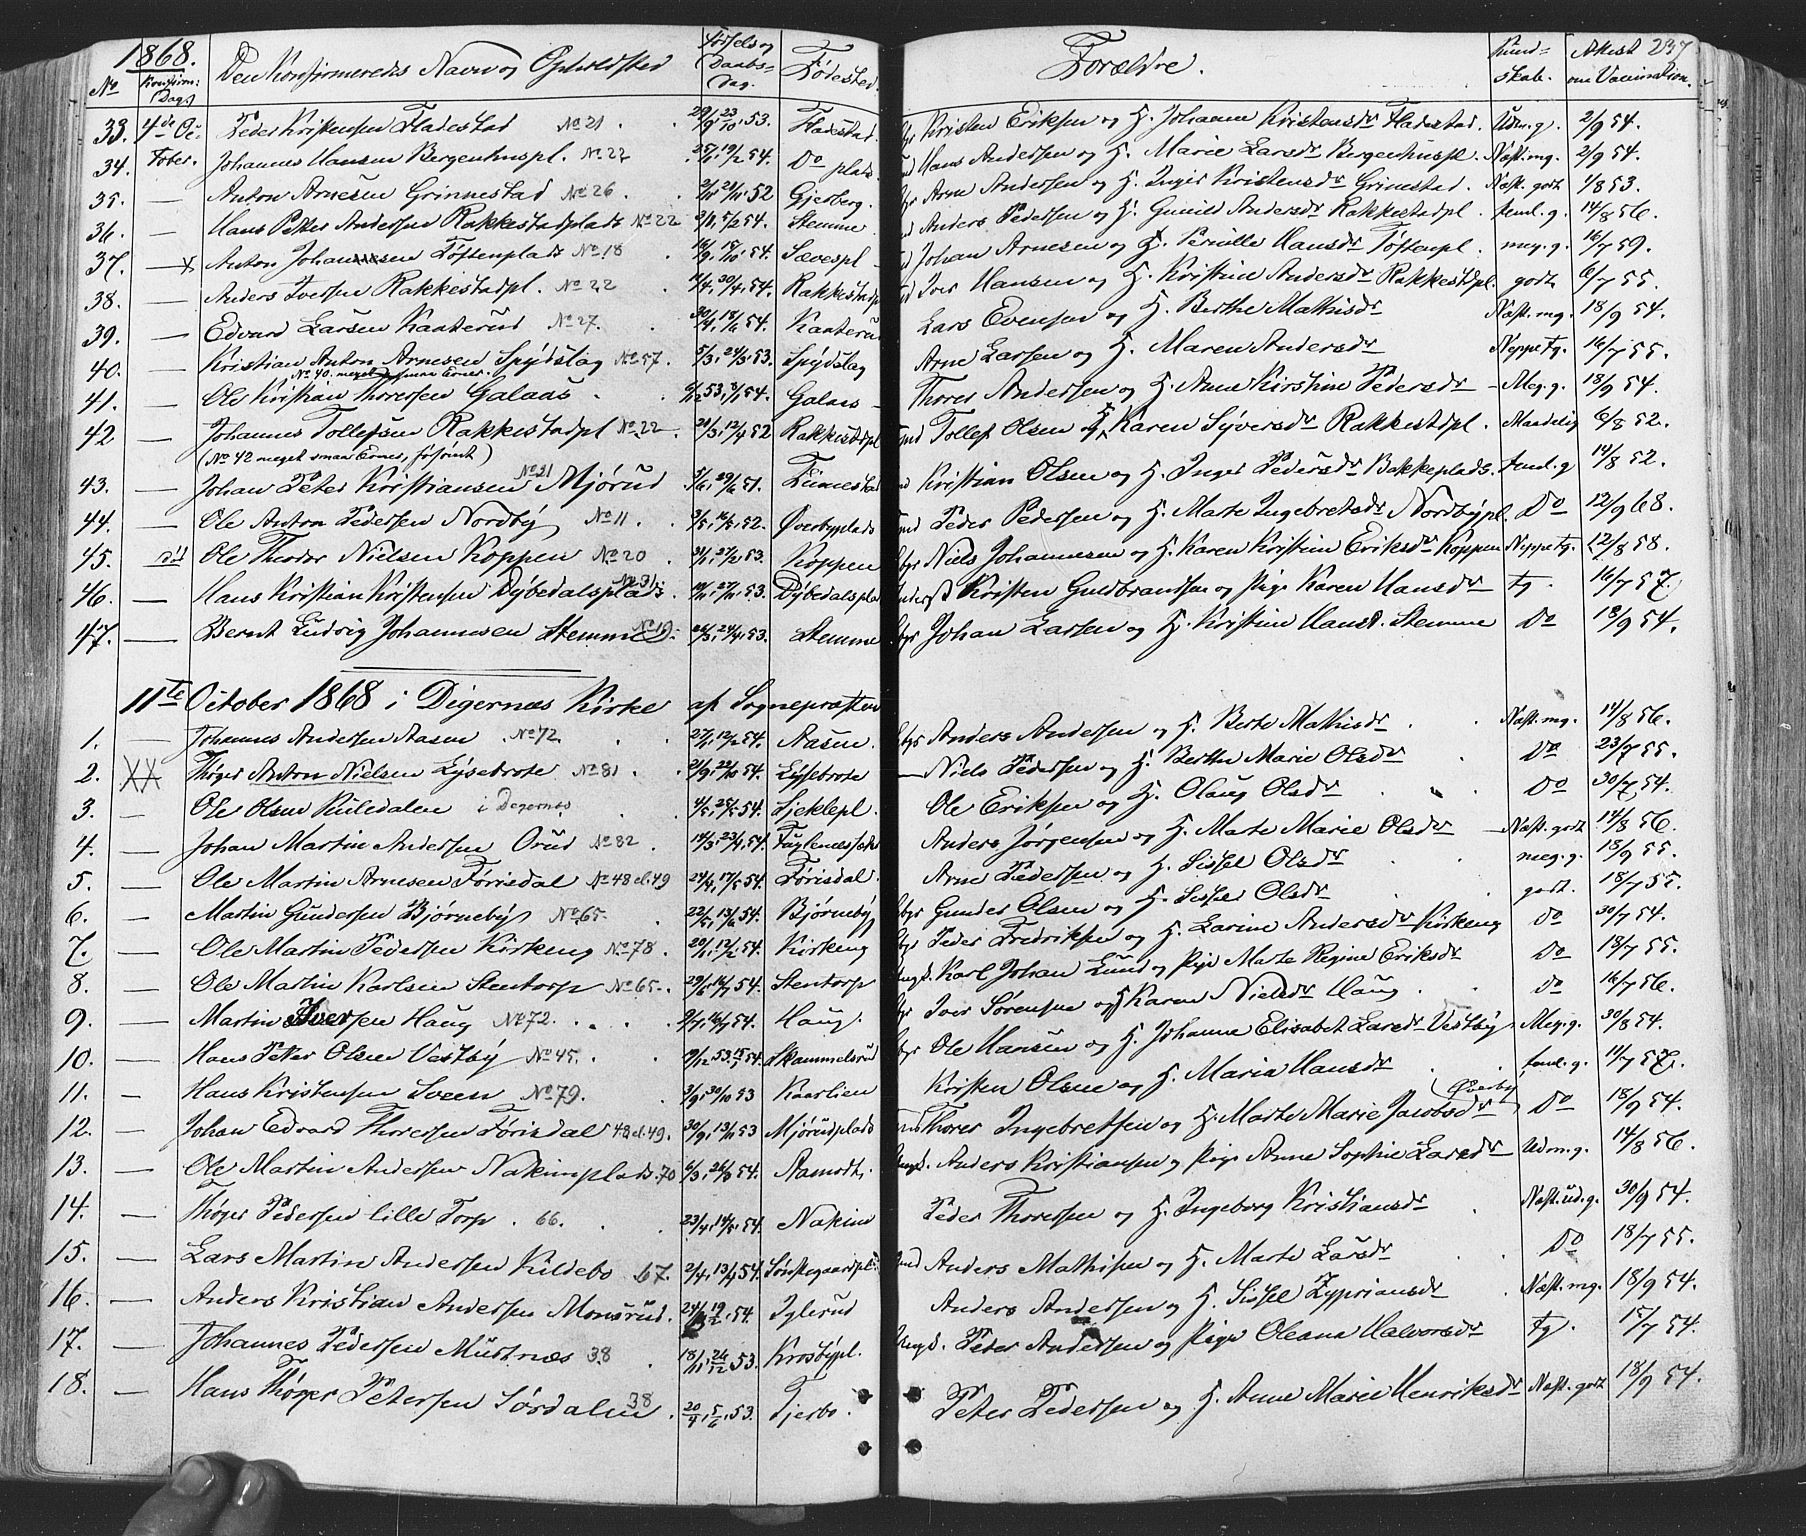 1868.
No Konfirm: Dag. Den Konfirmeredes Navn og Opholdsted Fødsels og Daabs-Dag. Fødested Forældre. Kund-skab. Attest om Vaccination. 237
33. 4de Oc- Peder Kristensen Fladestad No 21 29/9, 23/10, 53. Fladestad. Kristen Eriksen og H. Johanne Kristensdr Fladestad. Udm. g. 2/9 54.
34. tober. Johannes Hansen Bergenhuspl. No 22 19/2 54. Do plads. Hans Andersen og H. Marie Larsdr Bergenhuspl. Næst. mg. 2/9 54.
35. — Anton Arnesen Grinnestad No 26 52 Gjerberg. Arne Andersen og H. Inger Kristensdr Grinestad. Næst. godt 4/8 53.
36. — Hans Petter Andersen Rakkestadplads No 22 5/2 54. Stemme Anders Pedersen og H. Gunild Andersdr Rakkestadpl. teml. g. 14/8 56.
37. — x Anton Johannesen Toftenplads No 18 18/10, 54. Sævespl Johan Arnesen og H. Pernille Hansdr Toftenpl. meg. g. 16/7 59.
38. — Anders Iversen Rakkestadpl. No 22 11/4, 30/4, 54. Rakkestadpl Iver Hansen og H. Kristine Andersdr Rakkestpl. godt 6/7 55.
39. — Edvard Larsen Kaaterud No 27. 30/4, 18/6 54. Kaaterud Lars Evensen og H. Berthe Mathisdr Næst. mg. 18/9 54.
40. — Kristian Anton Arnesen Spydslag No 57. 5/3, 24/3, 53. Spydslag Arne Larsen og H. Maren Andersdr Neppe tg. 16/7 55.
No 40. meget smaa Evner.
41. — Ole Kristian Thoresen Galaas 53, 54. Galaas Thores Andersen og H. Anne Kirstine Pedersdr Meg. g. 18/9 54.
42 — Johannes Tollefsen Rakkestadpl No 22 20/3, 12/4 52 Rakkestadpl Tollef Olsen og H. Karen Syversdr Rakkestadpl. Maadelig 6/8 52.
(No 42 meget smaa Evner, )
43. — Johan Peter Kristiansen No 21 Mjørud 3/6, 29/6 51. Finnestad Kristian Olsen og H. Inger Pedersdr Bakkeplads. teml. g 14/8 52.
44. — Ole Anton Pedersen Nordby No 11. 3/5, 16/5, 52. Øverbyplads Peder Pedersen og H. Marte Ingebretsdr Nordbypl. Do 12/9 68.
45. Ole Theodor Nielsen Koppen No 20 31/1, 27/2 53. Koppen Niels Johannesen og H. Karen Kristine Eriksdr Koppen Neppe tg. 12/8 58.
46. — Hans Kristian Kristensen Dybedalsplads. No 31 27/11, 53. Dybedalsplad Kristen Guldbrandsen og Pige Karen Hansdr tg. 16/7 57.
47. — Bernt Ludvig Johannesen Stemme No 19. 26/3, 24/4, 53. Stemme Johan Larsen og H. Kristine Hansd. Stemme Do 18/9 54.
11te October 1868 i Digernæs Kirke af Sognepræsten
1. — Johannes Andersen Aasen No 72. 27/1, 12/2 54. Aasen. Anders Andersen og H. Berte Mathisdr Næst. mg. 14/8 56.
2. XX Thøger Anton Nielsen Lysebrote No 81 2/9, 22/10 54. Lysebrote Niels Pedersen og H. Berthe Marie Olsdr Do 23/7 55.
3. — Ole Olsen Kuledalen i Degernæs 4/5, 25/5 54. Sjeklepl. Ole Eriksen og H. Olaug Olsdr Do 30/7, 54.
4. — Johan Martin Andersen Orud No 82. 14/3, 23/4, 54. Fuglenæs Anders Jørgensen og H. Marte Marie Olsdr Næst. godt 14/8 56.
5. — Ole Martin Arnesen Førisdal No 48 el. 49 24/4, 17/5 54. Førisdal. Arne Pedersen og H. Sissel Olsdr meg. g. 18/9 55.
6. — Martin Gundersen Bjørneby No 65. 22/5, 13/6 54. Bjørneby Gunder Olsen og H. Sissel Olsdr godt. 18/7 55.
7. — Ole Martin Pedersen Kirkeng No 78. 20/1, 12/2 54. Kirkeng Peder Fredriksen og H. Larine Andersdr Kirkeng Do 30/7 54.
8. — Ole Martin Karlsen Stentorp No 65. 29/6, 16/7 54. Stentorp Karl Johan Lund og Pige Marte Regine Eriksdr Do 18/7 55.
9. — Martin Iversen Haug No 72. 9/7, 16/7 54. Haug. Iver Sørensen og H. Karen Nielsdr Haug Do 16/7 56.
10. — Hans Petter Olsen Vestby No 45. 9/12 53, 15/1 54. Skammelsrud Ole Hansen og H. Johanne Elisabet Larsdr Vestby Meg. g. 30/8 54.
11. — Hans Kristensen Sveen No 79. 3/9, 30/10 53 Kaarlien Kristen Olsen og H. Maria Hansdr teml. g. 11/7 57.
12. — Johan Edvard Thoresen Førisdal 48 el. 49. 30/9, 13/11 53 Mjørudplads Thores Ingebretsen og H. Marte Marie Jacobsdr (Øverby) Do 18/9 54.
13. — Ole Martin Andersen Nakimplads. 70 6/3, 26/3 54. Aamodt. Anders Kristiansen og Pige Anne Sophie Larsdr Udm. g. 14/8 56.
14. — Thøger Pedersen lille Torp. 66. 23/4, 14/5, 54. Nakim Peder Thoresen og H. Ingeborg Kristiansdr Næst. ud. g. 30/9 54.
15. — Lars Martin Andersen Kildebo 67. 2/4, 13/4 54. Sønstegaardpl. Anders Mathisen og H. Marte Larsdr Do 18/7 55.
16. — Anders Kristian Andersen Monsrud. 19/2, 54. Iglerud Anders Andersen og H. Sissel Zypriansdr Næst. mg. 18/9 54.
17. — Johannes Pedersen Mustnæs 38 18/11, 26/12 53. Krosbypl. Peter Andersen og Pige Oleana Halvorsdr tg. 15/7 54.
18. — Hans Thøger Petersen Sørdalen 38. 20/4, 5/6, 53. Tjerbo. Peter Pedersen og H. Anne Marie Henriksdr Næst. godt 18/9 54.